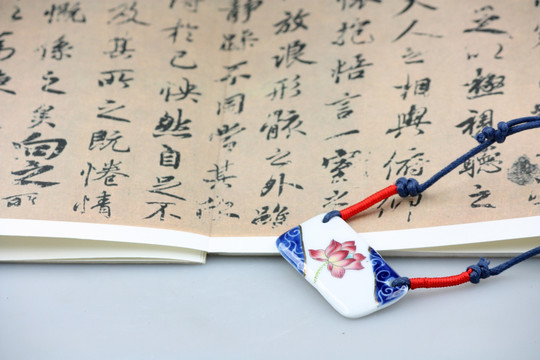 足以極視聽之
夫人之相與俯仰
懷抱悟言一室之
放浪形骸之外雖
靜躁不同當其欣
得於己快然自足不
及其所之既惓情
慨係之矣向之所